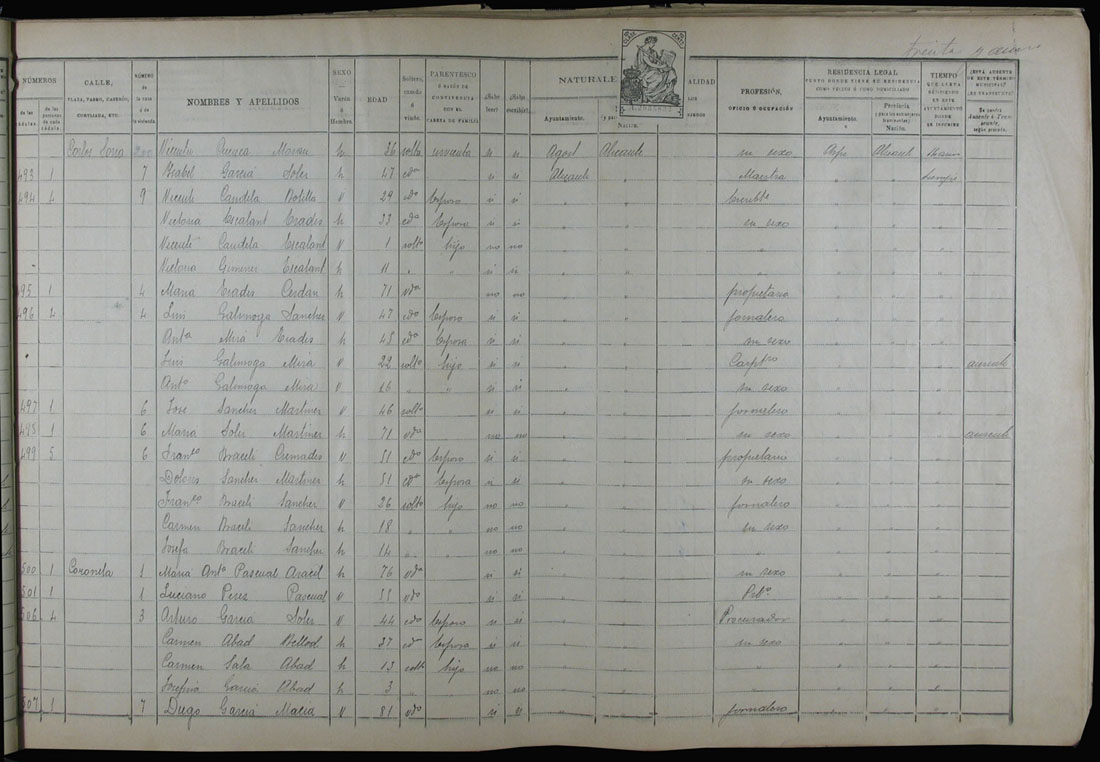 treinta y cinco
NÚMEROS
de las cédulas.
de las personas de cada cédula.
CALLE,
PLAZA, PASEO, CASERÍO, CORTIJADA, ETC.
NÚMERO de la casa ó de la vivienda
NOMBRES Y APELLIDOS
SEXO — Varón ó Hembra.
EDAD
Soltero, casado ó viudo.
PARENTESCO Ó RAZÓN DE CONVIVENCIA CON EL CABEZA DE FAMILIA
¿Sabe leer?
¿Sabe escribir?
NATURALE
ALIDAD
Ayuntamiento.
Nación.
PROFESIÓN,
OFICIO Ó OCUPACIÓN
RESIDENCIA LEGAL
PUNTO DONDE TIENE SU RESIDENCIA COMO VECINO Ó COMO DOMICILIADO
Ayuntamiento.
Provincia
Nación.
TIEMPO QUE LLEVA RESIDIENDO EN ESTE AYUNTAMIENTO DONDE SE INSCRIBE
¿ESTÁ AUSENTE DE ESTE TÉRMINO MUNICIPAL? ES TRANSEUNTE?
Se pondrá Ausente ó Transeunte, según proceda.
Carlos Soria h 26 solta si si Agost Alicante su sexo Alicante
493 1 7 Isabel Garcia Soler h 47 cda si si Alicante Maestra siempre
494 4 9 Vicente Candela Botella V 29 cdo Esposo si si
Victoria Escalant Erades h 33 cda Esposa si si su sexo
Vicente Candela Escalant V 1 solto hijo no no
Victoria Gimenez Escalant h 11 " " si si
495 1 4 Maria Erades Cerdan h 71 vda no no propietario
496 4 4 Luis Galinsoga Sanchez V 47 cdo Esposo si si jornalero
Anta Mira Erades h 45 cda Esposa si si su sexo
Luis Galinsoga Mira V 22 solto hijo si si Carptro ausente
Anto Galinsoga Mira V 16 " " si si su sexo
497 1 6 Jose Sanchez Martinez V 46 solto si si jornalero
498 1 6 Maria Soler Martinez h 71 vda no no su sexo ausente
499 5 6 Franco Braceli Cremades V 51 cdo Esposo si si propietario
Dolores Sanchez Martinez h 51 cda Esposa si si su sexo
Franco Braceli Sanchez V 26 solto hijo no no jornalero
Carmen Braceli Sanchez h 18 " no no su sexo
Josefa Braceli Sanchez h 14 " no no "
500 1 Coroneta 1 Maria Anta Pascual Aracil h 76 vda si si su sexo
501 1 1 Luciano Peres Pascual V 55 vdo si si Pbro
506 4 3 Arturo Garcia Soler V 44 cdo Esposo si si Procurador
Carmen Abad Bellod h 37 cda Esposa si si su sexo
Carmen Sala Abad h 13 solta hijo no no "
Josefina Garcia Abad h 3 " no no
507 1 7 Diego Garcia Macia V 81 vdo si si jornalero